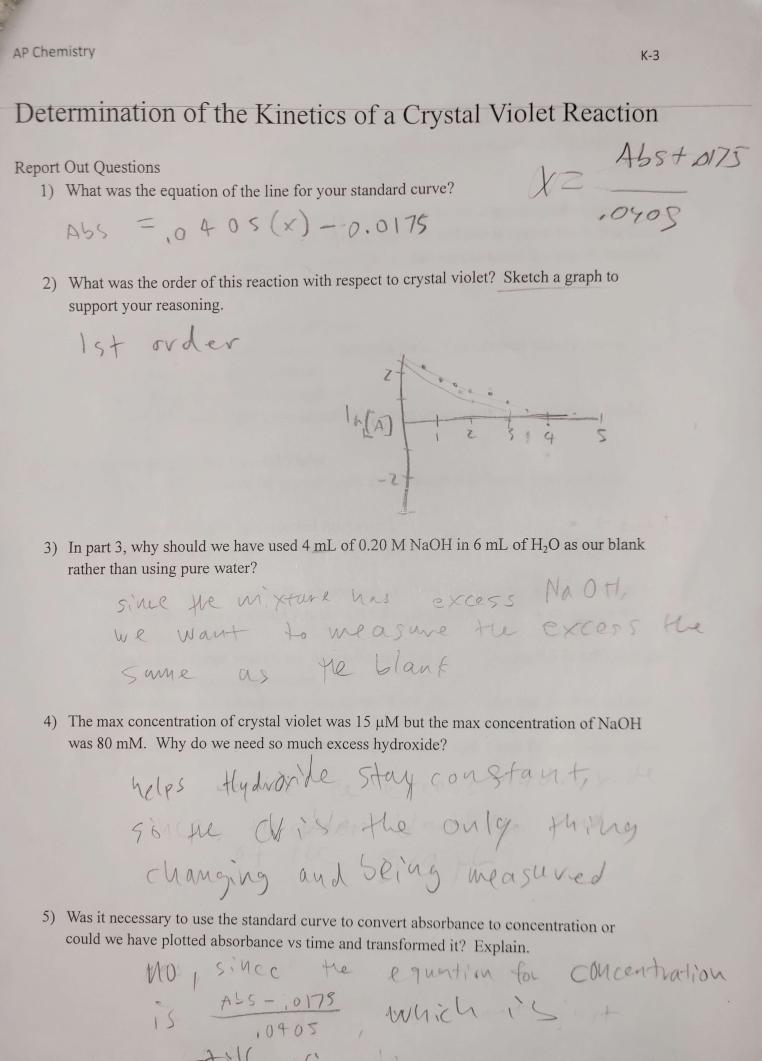 AP Chemistry
K-3
Determination of the Kinetics of a Crystal Violet Reaction
Report Out Questions
1) What was the equation of the line for your standard curve?
Abs = .0405(x) - 0.0175
x = Abs + .0175
.0405
2) What was the order of this reaction with respect to crystal violet? Sketch a graph to
support your reasoning.
1st order
2
ln[A]
1 2 3 4 5
-2
3) In part 3, why should we have used 4 mL of 0.20 M NaOH in 6 mL of H₂O as our blank
rather than using pure water?
since the mixture has excess NaOH,
we want to measure the excess the
same as the blank
4) The max concentration of crystal violet was 15 μM but the max concentration of NaOH
was 80 mM. Why do we need so much excess hydroxide?
helps Hydroxide stay constant,
so the CV is the only thing
changing and being measured
5) Was it necessary to use the standard curve to convert absorbance to concentration or
could we have plotted absorbance vs time and transformed it? Explain.
no, since the equation for concentration
is Abs - .0175
.0405 , which is